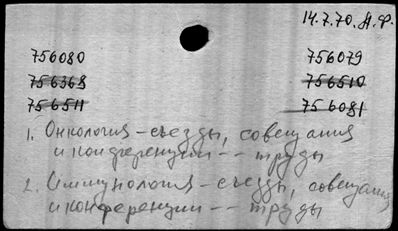 14.7.70. А.Ф.
756080 756079
756368 756510
756511 756081
1. Онкология - съезды, совещания
и конференции -- труды
2. Иммунология - съезды, совещания
и конференции -- труды